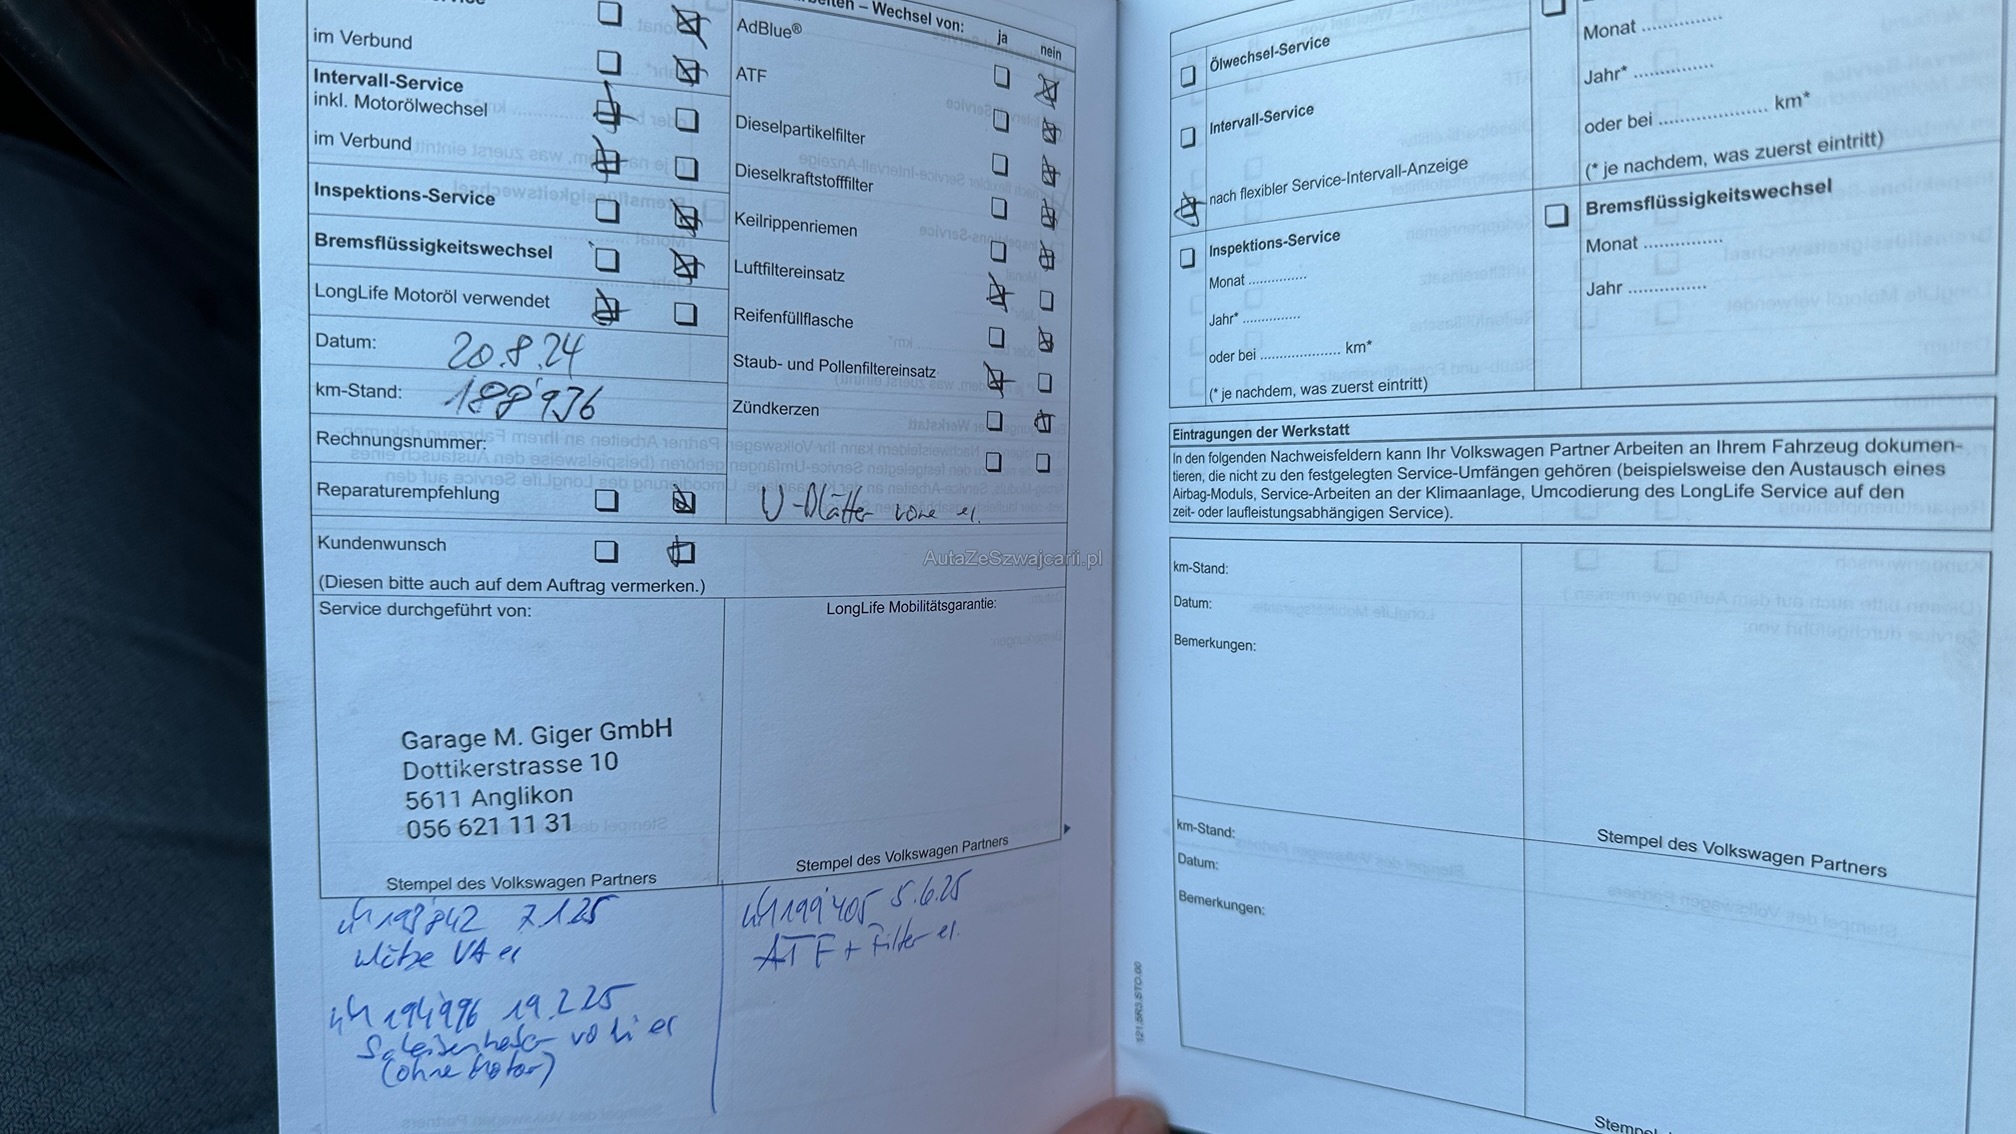 im Verbund
Intervall-Service
inkl. Motorölwechsel
im Verbund
Inspektions-Service
Bremsflüssigkeitswechsel
LongLife Motoröl verwendet
Datum: 20.8.24
km-Stand: 188'936
Rechnungsnummer:
Reparaturempfehlung
Kundenwunsch
(Diesen bitte auch auf dem Auftrag vermerken.)
Service durchgeführt von:
Garage M. Giger GmbH
Dottikerstrasse 10
5611 Anglikon
056 621 11 31
Stempel des Volkswagen Partners
7.1.25
VA
194'996 19.2.25
(ohne Motor)
– Wechsel von:
ja nein
AdBlue®
ATF
Dieselpartikelfilter
Dieselkraftstofffilter
Keilrippenriemen
Luftfiltereinsatz
Reifenfüllflasche
Staub- und Pollenfiltereinsatz
Zündkerzen
U-Blätter vorne
LongLife Mobilitätsgarantie:
Stempel des Volkswagen Partners
199'405 5.6.25
ATF + Filter
AutaZeSzwajcarii.pl
121.5R3.STO.00
Ölwechsel-Service
Intervall-Service
nach flexibler Service-Intervall-Anzeige
Inspektions-Service
Monat ..............
Jahr* ..............
oder bei .................... km*
(* je nachdem, was zuerst eintritt)
Monat ..............
Jahr* ..............
oder bei .................... km*
(* je nachdem, was zuerst eintritt)
Bremsflüssigkeitswechsel
Monat ..............
Jahr ..............
Eintragungen der Werkstatt
In den folgenden Nachweisfeldern kann Ihr Volkswagen Partner Arbeiten an Ihrem Fahrzeug dokumen-
tieren, die nicht zu den festgelegten Service-Umfängen gehören (beispielsweise den Austausch eines
Airbag-Moduls, Service-Arbeiten an der Klimaanlage, Umcodierung des LongLife Service auf den
zeit- oder laufleistungsabhängigen Service).
km-Stand:
Datum:
Bemerkungen:
Stempel des Volkswagen Partners
km-Stand:
Datum:
Bemerkungen: